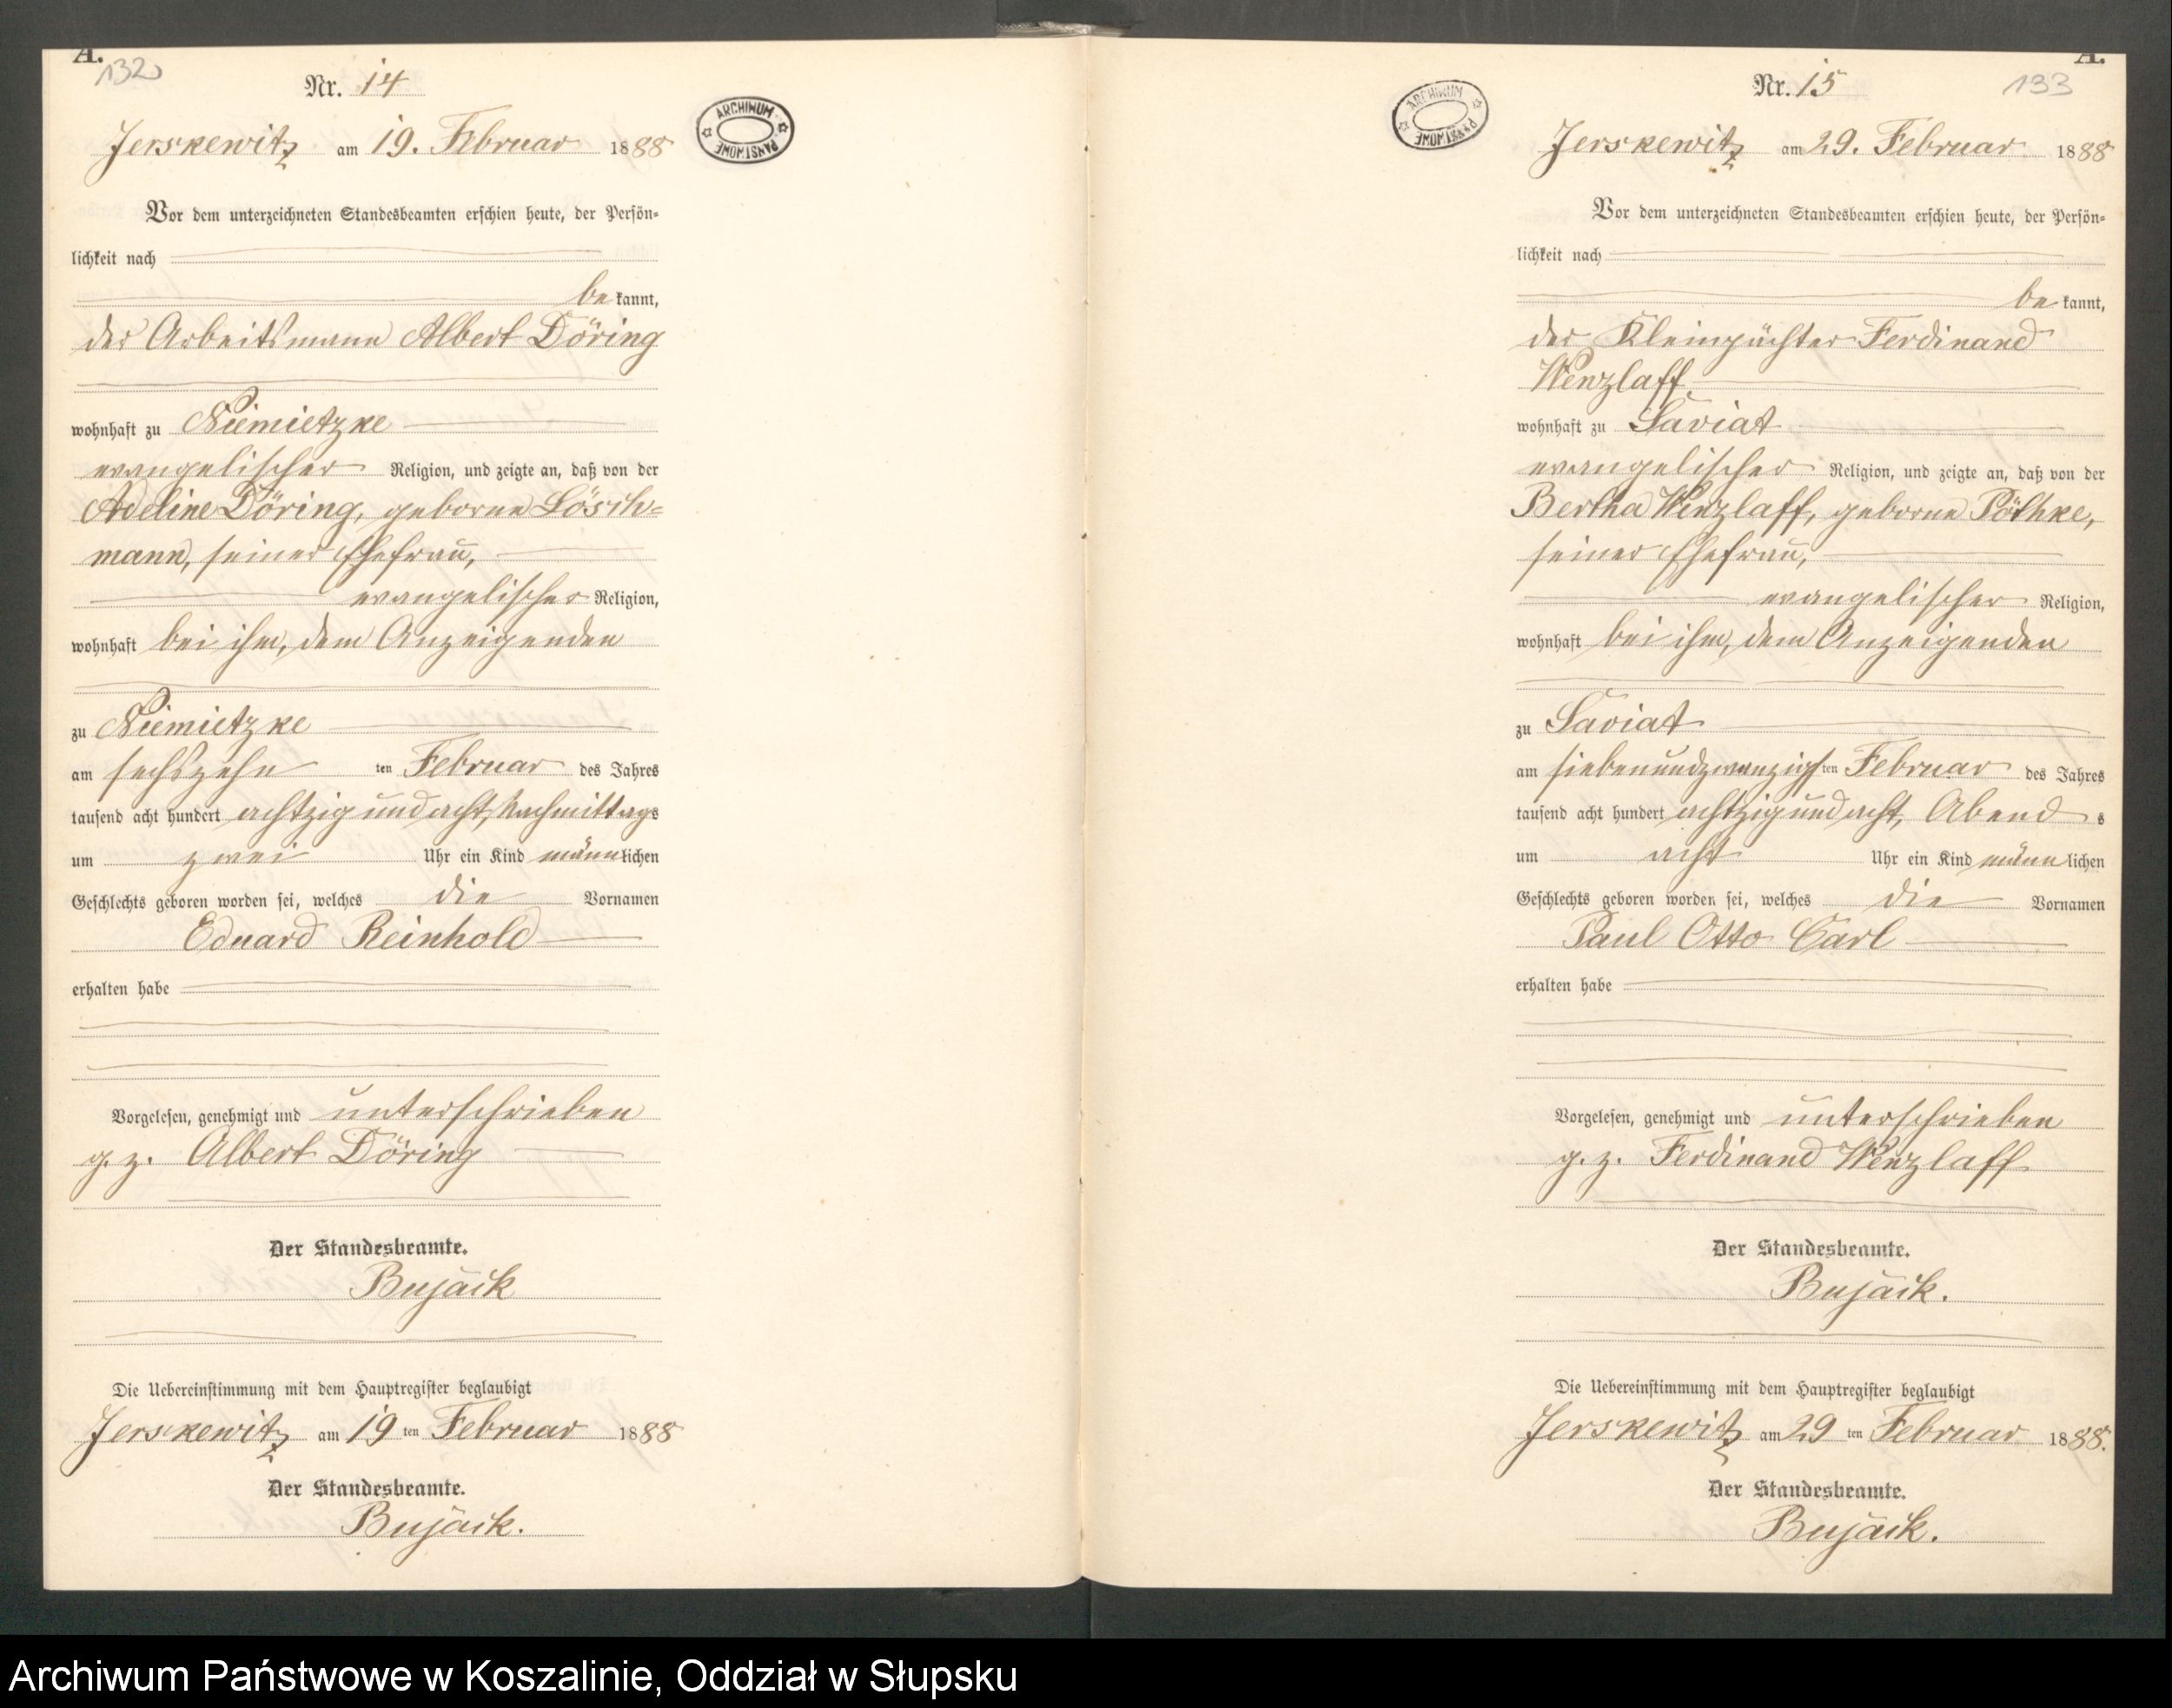 A.
132
Nr. 14
ARCHIWUM PAŃSTWOWE
Jerskewitz am 19. Februar 1888
Vor dem unterzeichneten Standesbeamten erschien heute, der Persön-
lichkeit nach
be kannt,
der Arbeitsmann Albert Döring
wohnhaft zu Niemietzke
evangelischer Religion, und zeigte an, daß von der
Adeline Döring, geborne Lösch-
mann, seiner Ehefrau,
evangelischer Religion,
wohnhaft bei ihm, dem Anzeigenden
zu Niemietzke
am sechszehn ten Februar des Jahres
tausend acht hundert achtzig und acht, Nachmittags
um zwei Uhr ein Kind männlichen
Geschlechts geboren worden sei, welches die Vornamen
Eduard Reinhold
erhalten habe
Vorgelesen, genehmigt und unterschrieben
g. z. Albert Döring
Der Standesbeamte.
Bujack
Die Uebereinstimmung mit dem Hauptregister beglaubigt
Jerskewitz am 19 ten Februar 1888
Der Standesbeamte.
Bujack.
A.
133
Nr. 15
ARCHIWUM PAŃSTWOWE
Jerskewitz am 29. Februar 1888
Vor dem unterzeichneten Standesbeamten erschien heute, der Persön-
lichkeit nach
be kannt,
der Kleinpächter Ferdinand
Wenzlaff
wohnhaft zu Saviat
evangelischer Religion, und zeigte an, daß von der
Bertha Wenzlaff, geborne Pöthke,
seiner Ehefrau,
evangelischer Religion,
wohnhaft bei ihm, dem Anzeigenden
zu Saviat
am siebenundzwanzigs ten Februar des Jahres
tausend acht hundert achtzig und acht, Abend s
um acht Uhr ein Kind männlichen
Geschlechts geboren worden sei, welches die Vornamen
Paul Otto Carl
erhalten habe
Vorgelesen, genehmigt und unterschrieben
g. z. Ferdinand Wenzlaff
Der Standesbeamte.
Bujack.
Die Uebereinstimmung mit dem Hauptregister beglaubigt
Jerskewitz am 29 ten Februar 1888.
Der Standesbeamte.
Bujack.
Archiwum Państwowe w Koszalinie, Oddział w Słupsku